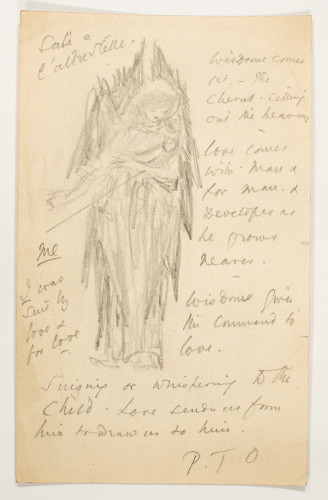 Sole e
l'altre stelle.
Wisdome comes
1st. - The
Cherub. Calling
out the heavens
Love comes
with Man &
for man. &
Developes as
he grows
nearer.
Wisdome gives
the command to
love.
Me
I was
sent by
love &
for love
Singing or whispering to the
Child. Love sends us from
him to draw us to him.
P.T.O